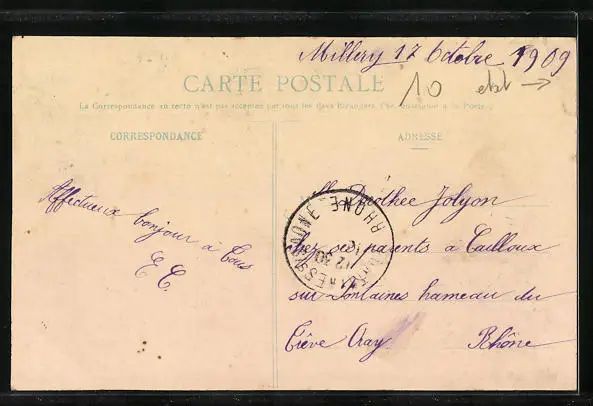 Millery 17 Octobre 1909
CARTE POSTALE
10
La Correspondance au recto n'est pas acceptée par tous les pays Etrangers. (Se renseigner à la Poste.)
CORRESPONDANCE
ADRESSE
Affectueux bonjour à tous
E C.
Mlle Dorothée Jolyon
chez ses parents à Cailloux
sur Fontaines hameau du
Rhône
RHONE